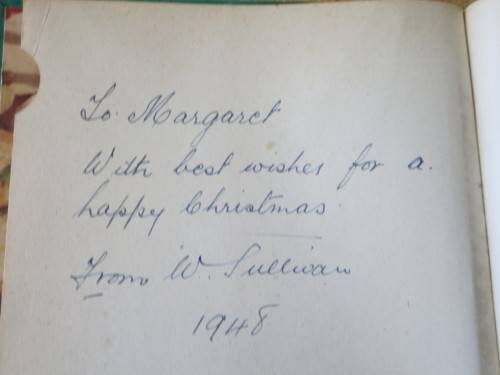 To. Margaret
With best wishes for a.
happy Christmas.
From W. Sullivan
1948